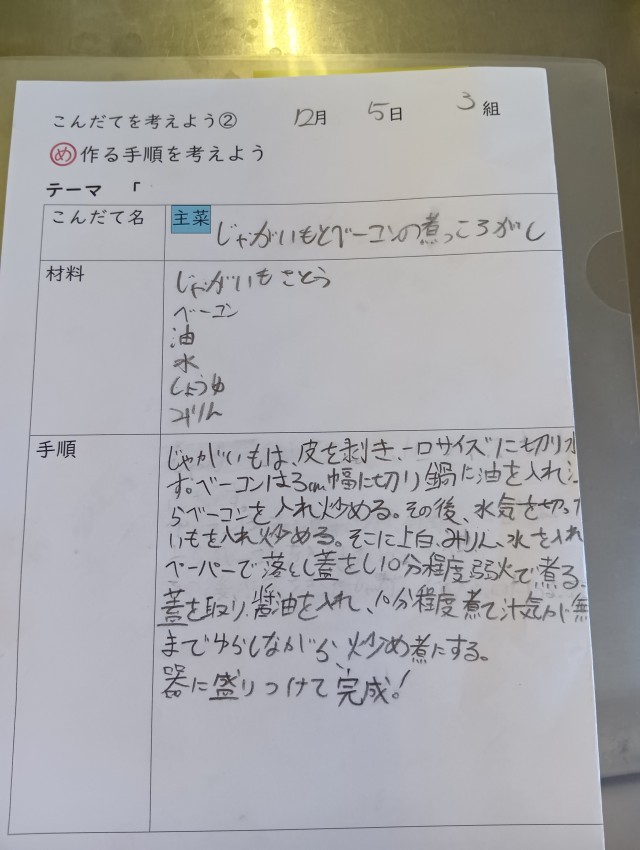 こんだてを考えよう② 12月 5日 3組
め 作る手順を考えよう
テーマ 「
こんだて名 主菜 じゃがいもとベーコンの煮っころがし
材料 じゃがいも さとう
ベーコン
油
水
しょうゆ
みりん
手順 じゃがいもは、皮を剥き、一口サイズに切り水
す。ベーコンは3cm幅に切り鍋に油を入れ
らベーコンを入れ炒める。その後、水気を切った
いもを入れ炒める。そこに上白、みりん、水を入れ
ペーパーで落とし蓋をし10分程度弱火で煮る、
蓋を取り、醤油を入れ、10分程度煮て汁気が無
までゆかしながら、炒め煮にする。
器に盛りつけて完成!